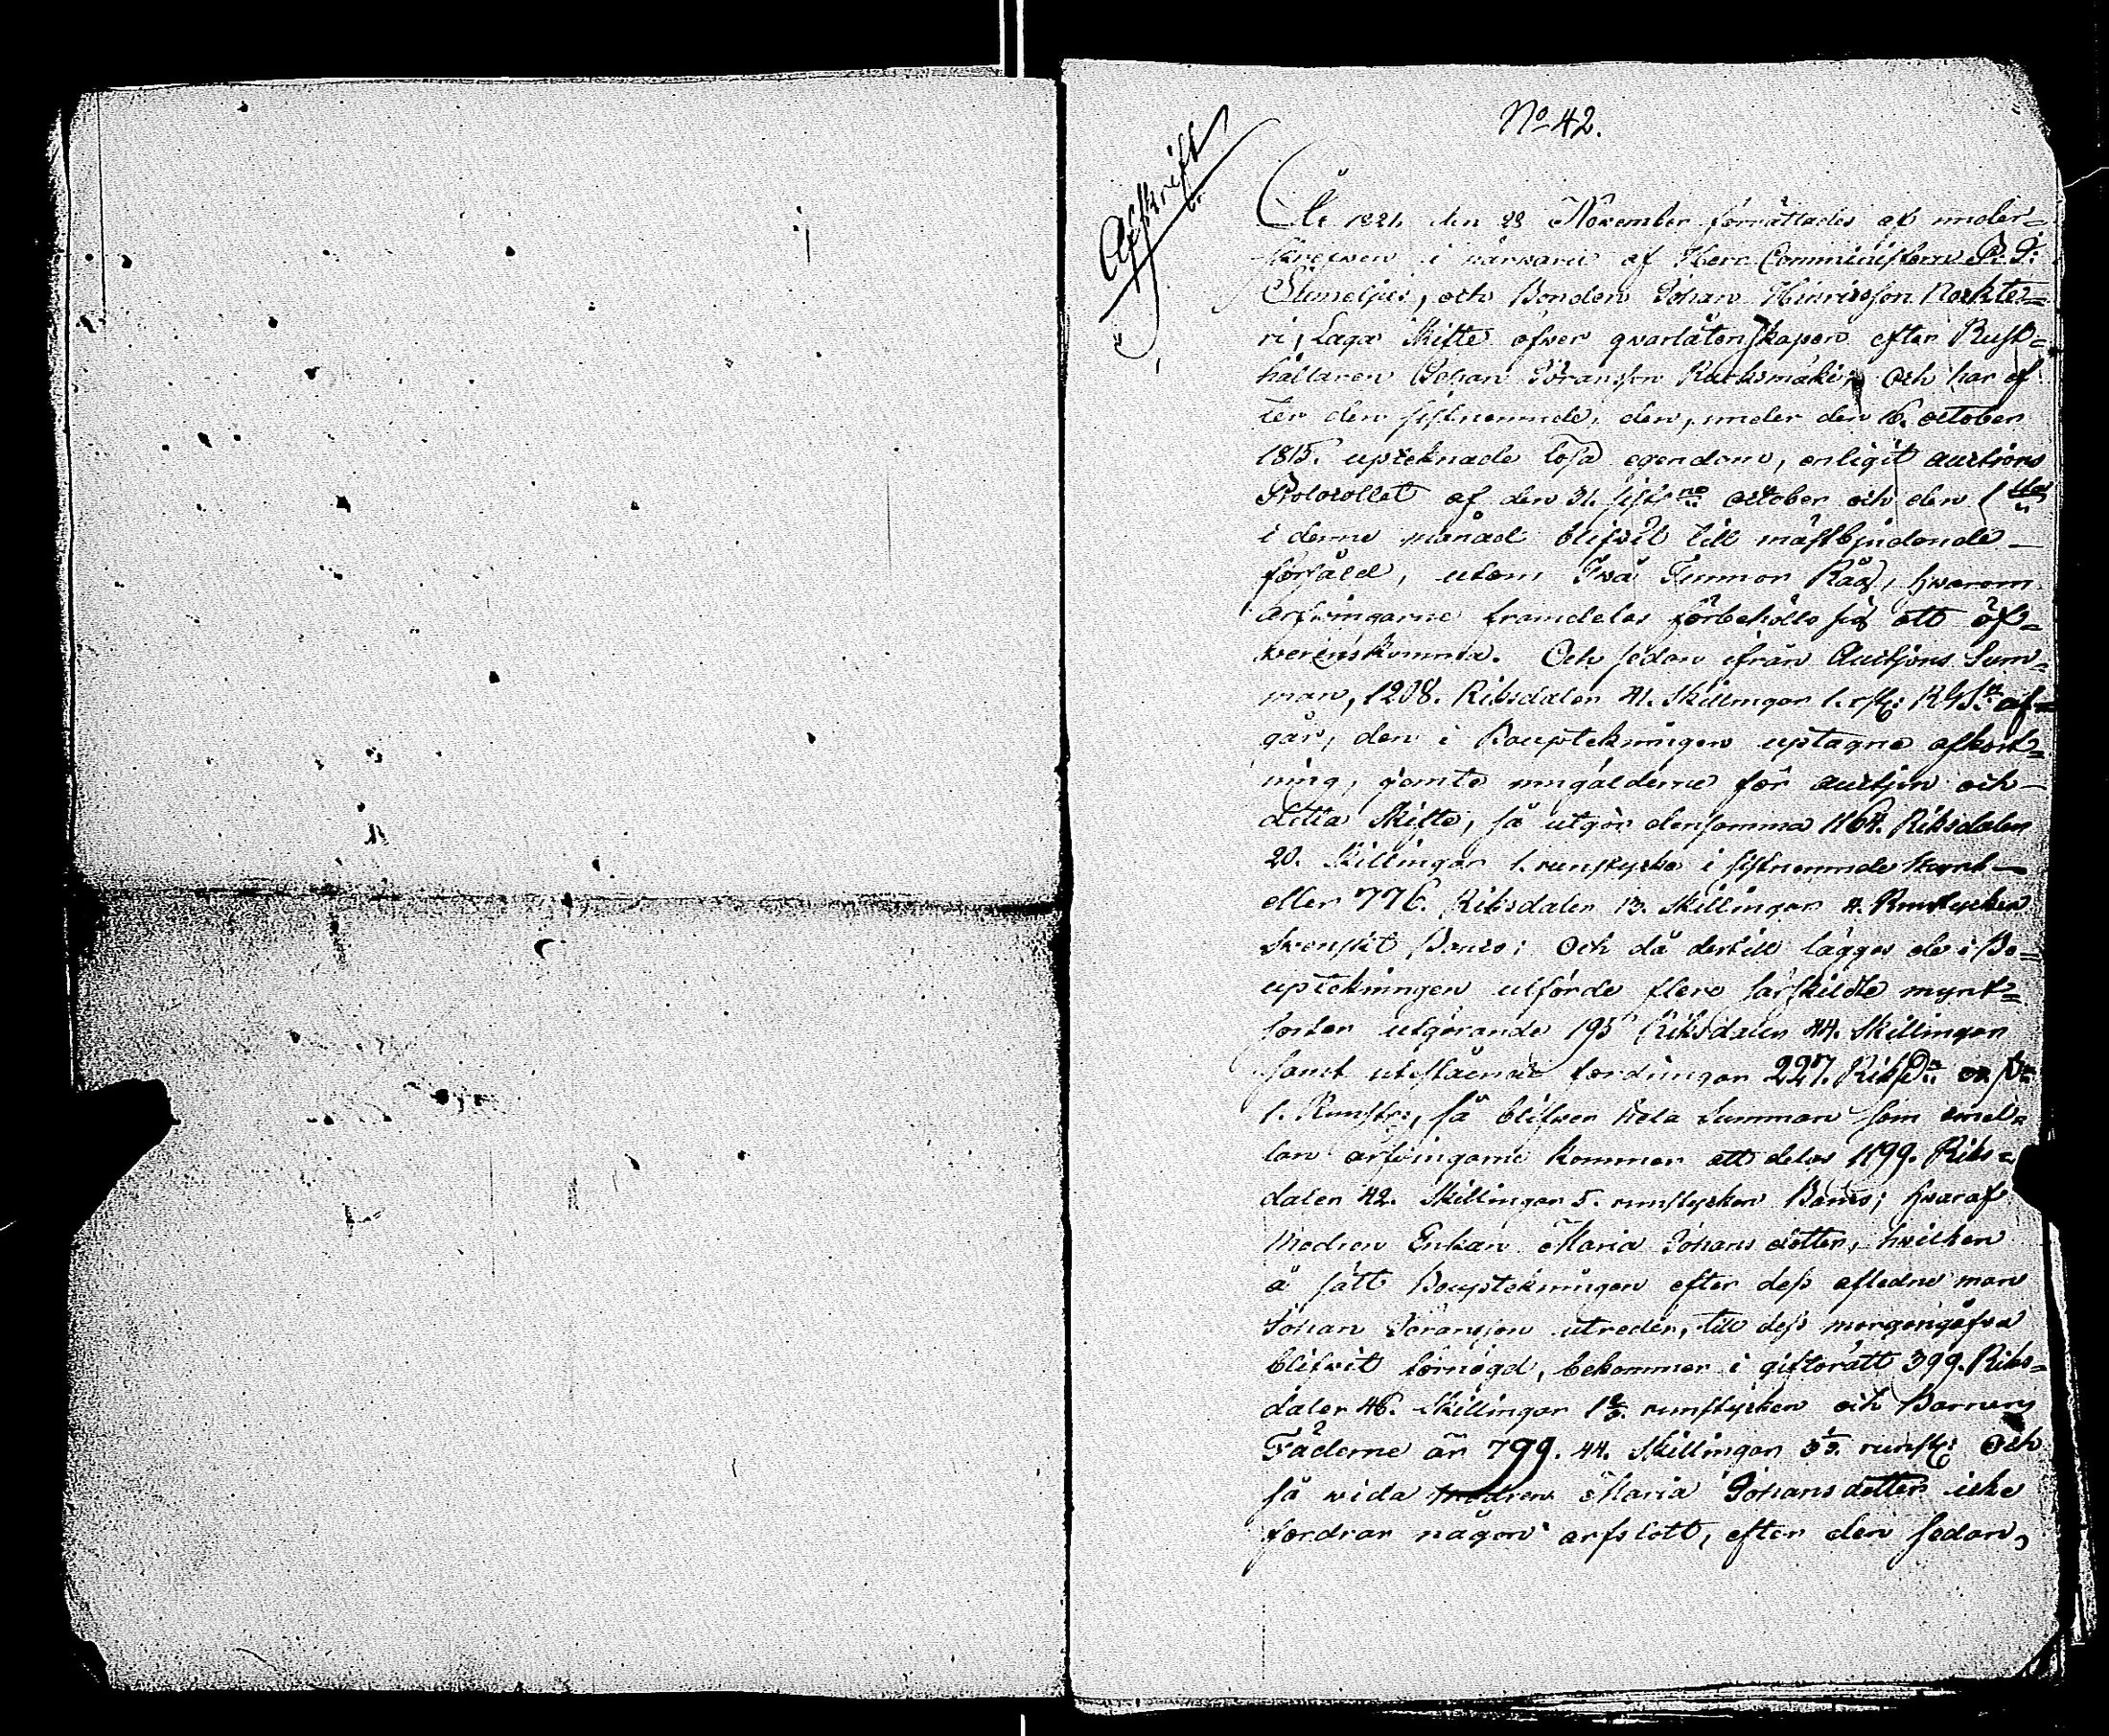 No 42.
Afskrift
År 1821 den 23 November förrättades af under=
skrefven i närwaro af Herr Comministern
och Bonden Johan Hinricsson
ri, Laga Skifte öfwer qvarlåtenskapen efter Rust=
hållaren Johan Göransson och har ef
ter den sistnemnde, den, under den 16. october
1815. upteknade lösa egendom, enligit auctions
Protocollet af den 31. sistne october och den 1
i denne månad blifwit till mästbjudande
försåld, utom Twå Tunnor Råg, hwarom
arfwingarne framdeles förbehållo sig att öf=
werenskomma. Och sedan ifrån Auctions Sum=
man, 1208. Riksdaler 41. Skillingar 1. rst: RGS af=
går, den i Bouptekningen uptagne afkort=
ning, jämte omgälderne för auctjon och
detta Skifte, så utgör densamma 1164. Riksdaler
20. Skillingar 1. runstycke i sistnemnde mynt
eller 776. Riksdaler 13. Skillingar 4. Runstycken
Svenskt Banco; Och då dertill lägges de i Bo=
uptekningen utförde flere särskildte mynt=
sorter utgörande 195 Riksdaler 44. Skillingar
samt utestående fordringar 227. RiksDr
1. Runst:, så blifwer hela Summan som emel=
lan arfwingarne kommer att delas 1199. Riks=
daler 42. Skillingar 5. runstycken Banco; hwaraf
Modren Enkan Maria Johans dotter, hwilken
å sått Bouptekningen efter dess aflednе man
Johan Göransson utreder, till dess morgongåfwa
blifwit förnögd, bekommer i giftorätt 399. Riks=
daler 46. Skillingar 1 2/3. runstycken och Barnens
Fäderne är 799. 44. Skillingar 3 1/3. runst: Och
så wida modren Maria Johansdotter icke
fordrar någon arfslott, efter den sedan,